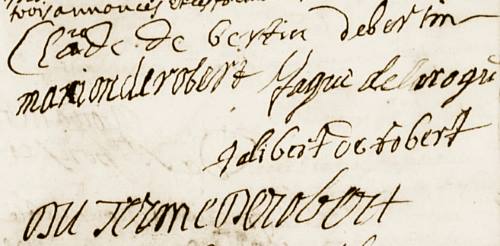 trois annonces
Clade de bertin debertin
marionderobert Jaque de
Jalibert de robert
Du terme Derobert